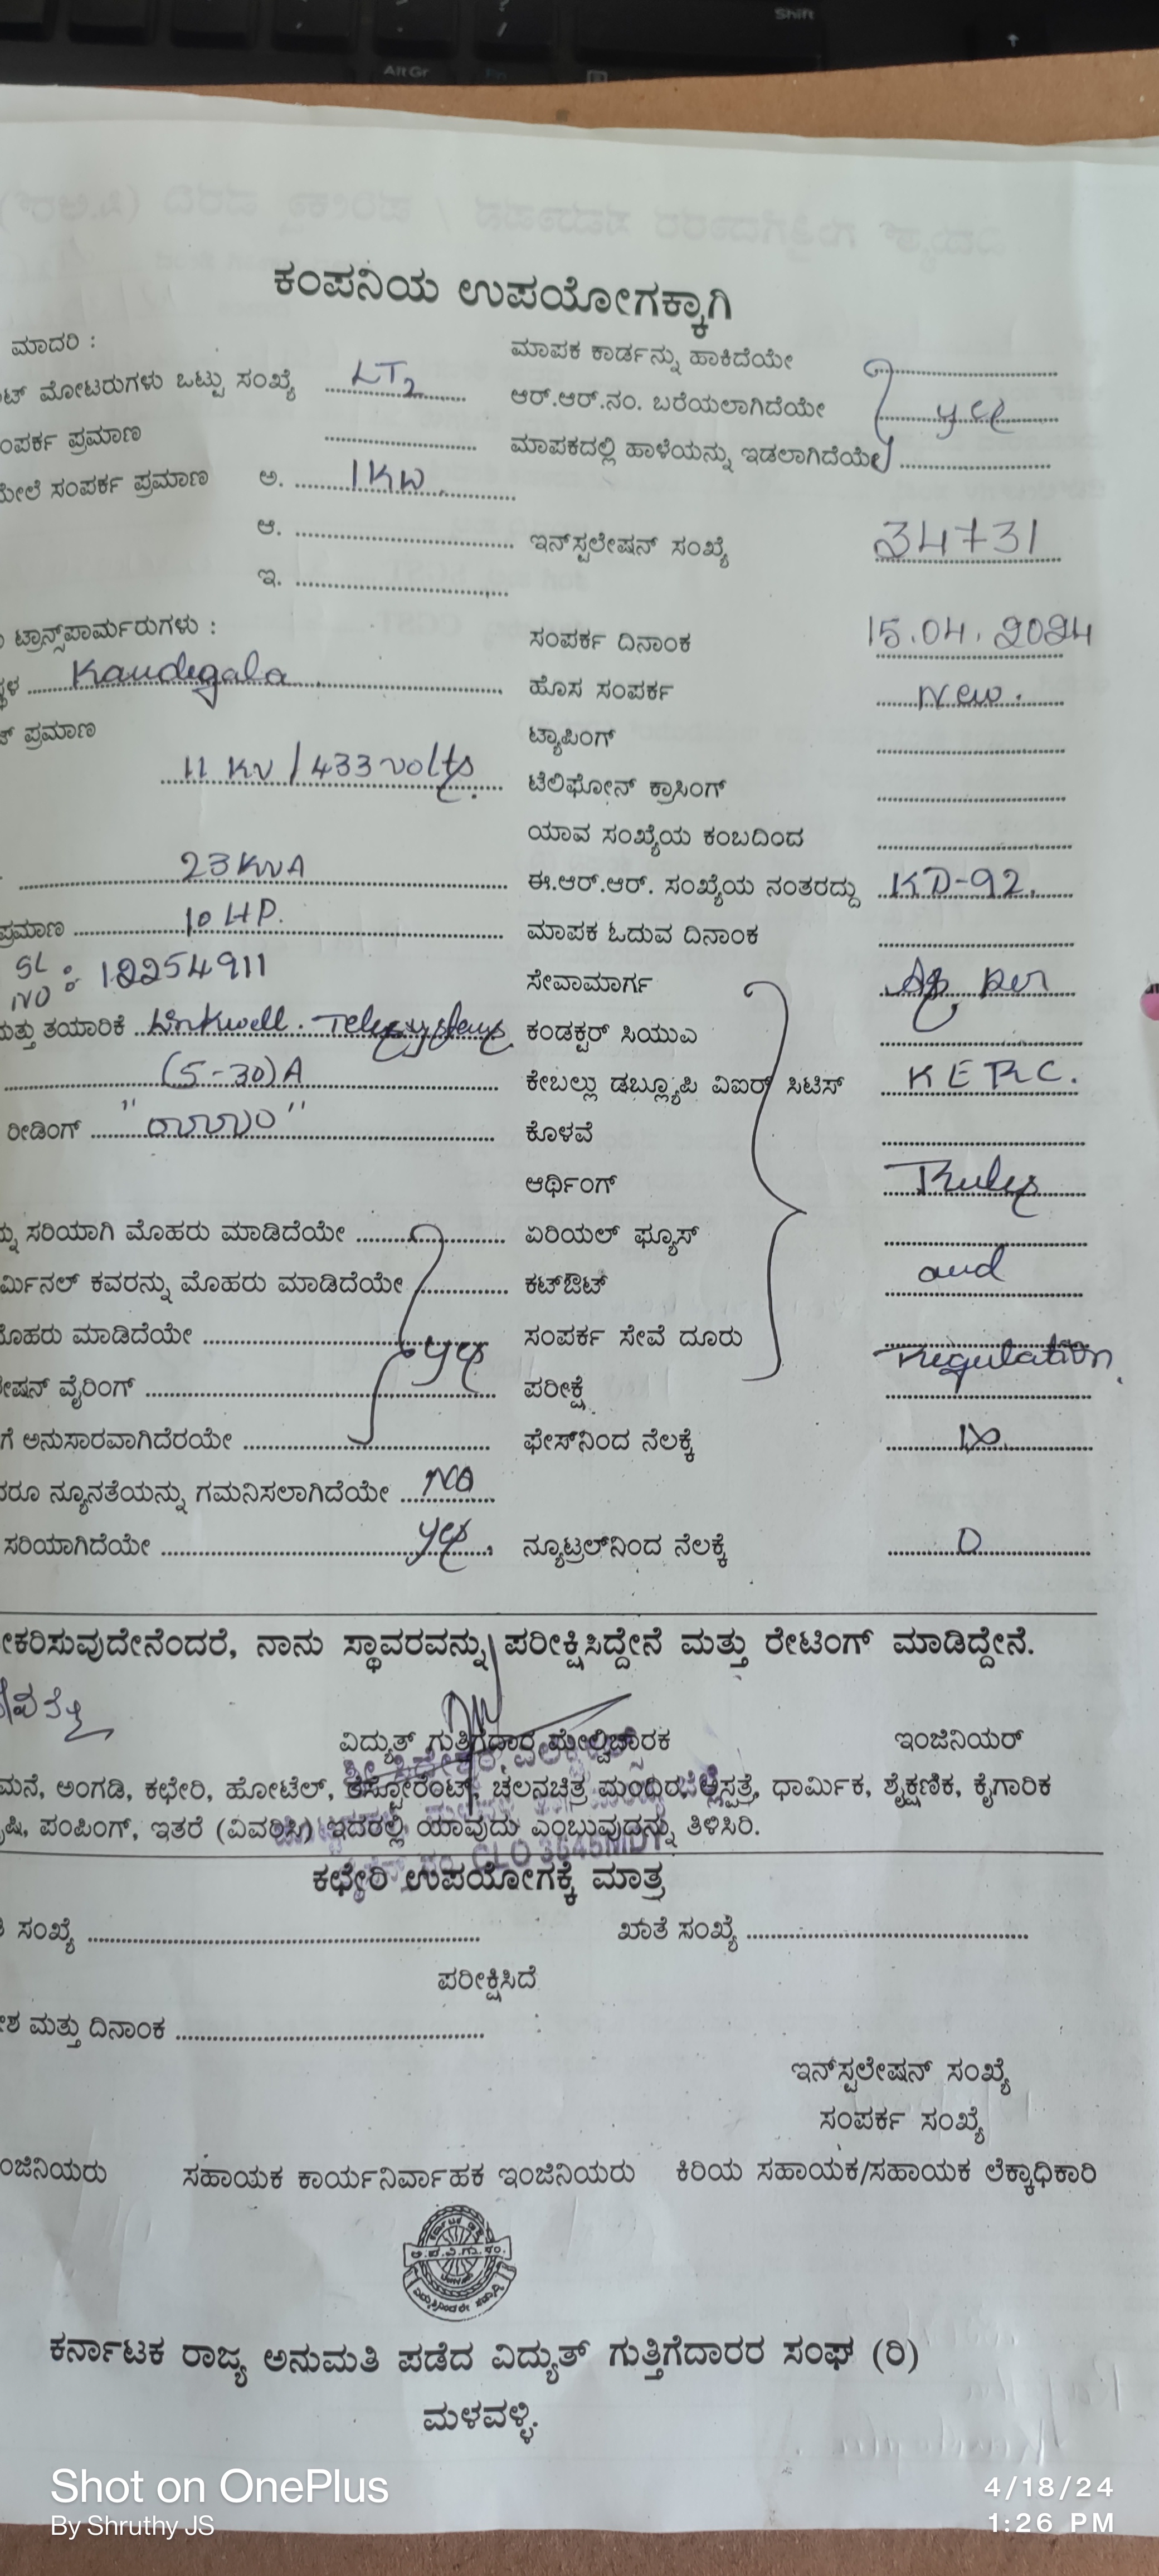 Shift
Alt Gr
ಕಂಪನಿಯ ಉಪಯೋಗಕ್ಕಾಗಿ
ಮಾದರಿ :
ಮಾಪಕ ಕಾರ್ಡನ್ನು ಹಾಕಿದೆಯೇ
ಟ್ ಮೋಟರುಗಳು ಒಟ್ಟು ಸಂಖ್ಯೆ LT2 ಆರ್.ಆರ್.ನಂ. ಬರೆಯಲಾಗಿದೆಯೇ yes
ಂಪರ್ಕ ಪ್ರಮಾಣ ಮಾಪಕದಲ್ಲಿ ಹಾಳೆಯನ್ನು ಇಡಲಾಗಿದೆಯೇ
ಮೇಲೆ ಸಂಪರ್ಕ ಪ್ರಮಾಣ ಅ. 1KW
ಆ. ಇನ್‌ಸ್ಟಲೇಷನ್ ಸಂಖ್ಯೆ 34731
ಇ.
ಟ್ರಾನ್ಸ್‌ಪಾರ್ಮರುಗಳು : ಸಂಪರ್ಕ ದಿನಾಂಕ 15.04.2024
ಸ್ಥಳ Kaudegala ಹೊಸ ಸಂಪರ್ಕ New.
ಪ್ರಮಾಣ ಟ್ಯಾಪಿಂಗ್
11 KV / 433 volts. ಟೆಲಿಫೋನ್ ಕ್ರಾಸಿಂಗ್
ಯಾವ ಸಂಖ್ಯೆಯ ಕಂಬದಿಂದ
23 KVA ಈ.ಆರ್.ಆರ್. ಸಂಖ್ಯೆಯ ನಂತರದ್ದು KD-92.
ಪ್ರಮಾಣ 10 HP. ಮಾಪಕ ಓದುವ ದಿನಾಂಕ
SL NO : 12254911 ಸೇವಾಮಾರ್ಗ As per
ಮತ್ತು ತಯಾರಿಕೆ Linkwell. Telesystems ಕಂಡಕ್ಟರ್ ಸಿಯುಎ
(5-30)A ಕೇಬಲ್ಲು ಡಬ್ಲ್ಯೂಪಿ ವಿಐರ್ ಸಿಟಿಸ್ KERC.
ರೀಡಿಂಗ್ ಕೊಳವೆ
ಆರ್ಥಿಂಗ್ Rules
ನ್ನು ಸರಿಯಾಗಿ ಮೊಹರು ಮಾಡಿದೆಯೇ ಏರಿಯಲ್ ಫ್ಯೂಸ್
ರ್ಮಿನಲ್ ಕವರನ್ನು ಮೊಹರು ಮಾಡಿದೆಯೇ ಕಟ್‌ಔಟ್ and
ಮೊಹರು ಮಾಡಿದೆಯೇ yes ಸಂಪರ್ಕ ಸೇವೆ ದೂರು Regulation.
ೇಷನ್ ವೈರಿಂಗ್ ಪರೀಕ್ಷೆ
ಗೆ ಅನುಸಾರವಾಗಿದೆರಯೇ ಫೇಸ್‌ನಿಂದ ನೆಲಕ್ಕೆ
ದರೂ ನ್ಯೂನತೆಯನ್ನು ಗಮನಿಸಲಾಗಿದೆಯೇ No
ಸರಿಯಾಗಿದೆಯೇ yes ನ್ಯೂಟ್ರಲ್‌ನಿಂದ ನೆಲಕ್ಕೆ 0
ೀಕರಿಸುವುದೇನೆಂದರೆ, ನಾನು ಸ್ಥಾವರವನ್ನು ಪರೀಕ್ಷಿಸಿದ್ದೇನೆ ಮತ್ತು ರೇಟಿಂಗ್ ಮಾಡಿದ್ದೇನೆ.
ವಿದ್ಯುತ್ ಗುತ್ತಿಗೆದಾರ ಮೇಲ್ವಿಚಾರಕ ಇಂಜಿನಿಯರ್
ಮನೆ, ಅಂಗಡಿ, ಕಛೇರಿ, ಹೋಟೆಲ್, ರೆಸ್ಟೋರೆಂಟ್, ಚಲನಚಿತ್ರ ಮಂದಿರ, ಆಸ್ಪತ್ರೆ, ಧಾರ್ಮಿಕ, ಶೈಕ್ಷಣಿಕ, ಕೈಗಾರಿಕ
ಷಿ, ಪಂಪಿಂಗ್, ಇತರೆ (ವಿವರಿಸಿ) ಇದರಲ್ಲಿ ಯಾವುದು ಎಂಬುವುದನ್ನು ತಿಳಿಸಿರಿ.
ಕಛೇರಿ ಉಪಯೋಗಕ್ಕೆ ಮಾತ್ರ
ಸಂಖ್ಯೆ ಖಾತೆ ಸಂಖ್ಯೆ
ಪರೀಕ್ಷಿಸಿದೆ
ೇಶ ಮತ್ತು ದಿನಾಂಕ
ಇನ್‌ಸ್ಟಲೇಷನ್ ಸಂಖ್ಯೆ
ಸಂಪರ್ಕ ಸಂಖ್ಯೆ
ಂಜಿನಿಯರು ಸಹಾಯಕ ಕಾರ್ಯನಿರ್ವಾಹಕ ಇಂಜಿನಿಯರು ಕಿರಿಯ ಸಹಾಯಕ/ಸಹಾಯಕ ಲೆಕ್ಕಾಧಿಕಾರಿ
ಕರ್ನಾಟಕ ರಾಜ್ಯ ಅನುಮತಿ ಪಡೆದ ವಿದ್ಯುತ್ ಗುತ್ತಿಗೆದಾರರ ಸಂಘ (ರಿ)
ಮಳವಳ್ಳಿ.
Shot on OnePlus 4/18/24
By Shruthy JS 1:26 PM